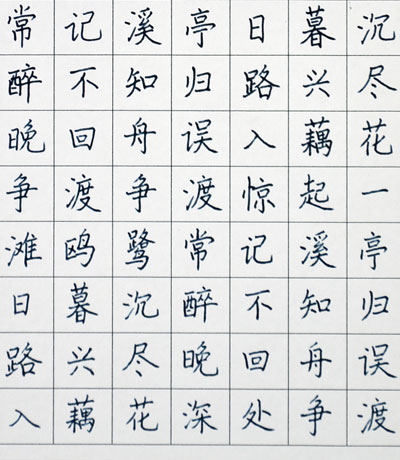 常记溪亭日暮沉
醉不知归路兴尽
晚回舟误入藕花
争渡争渡惊起一
滩鸥鹭常记溪亭
日暮沉醉不知归
路兴尽晚回舟误
入藕花深处争渡